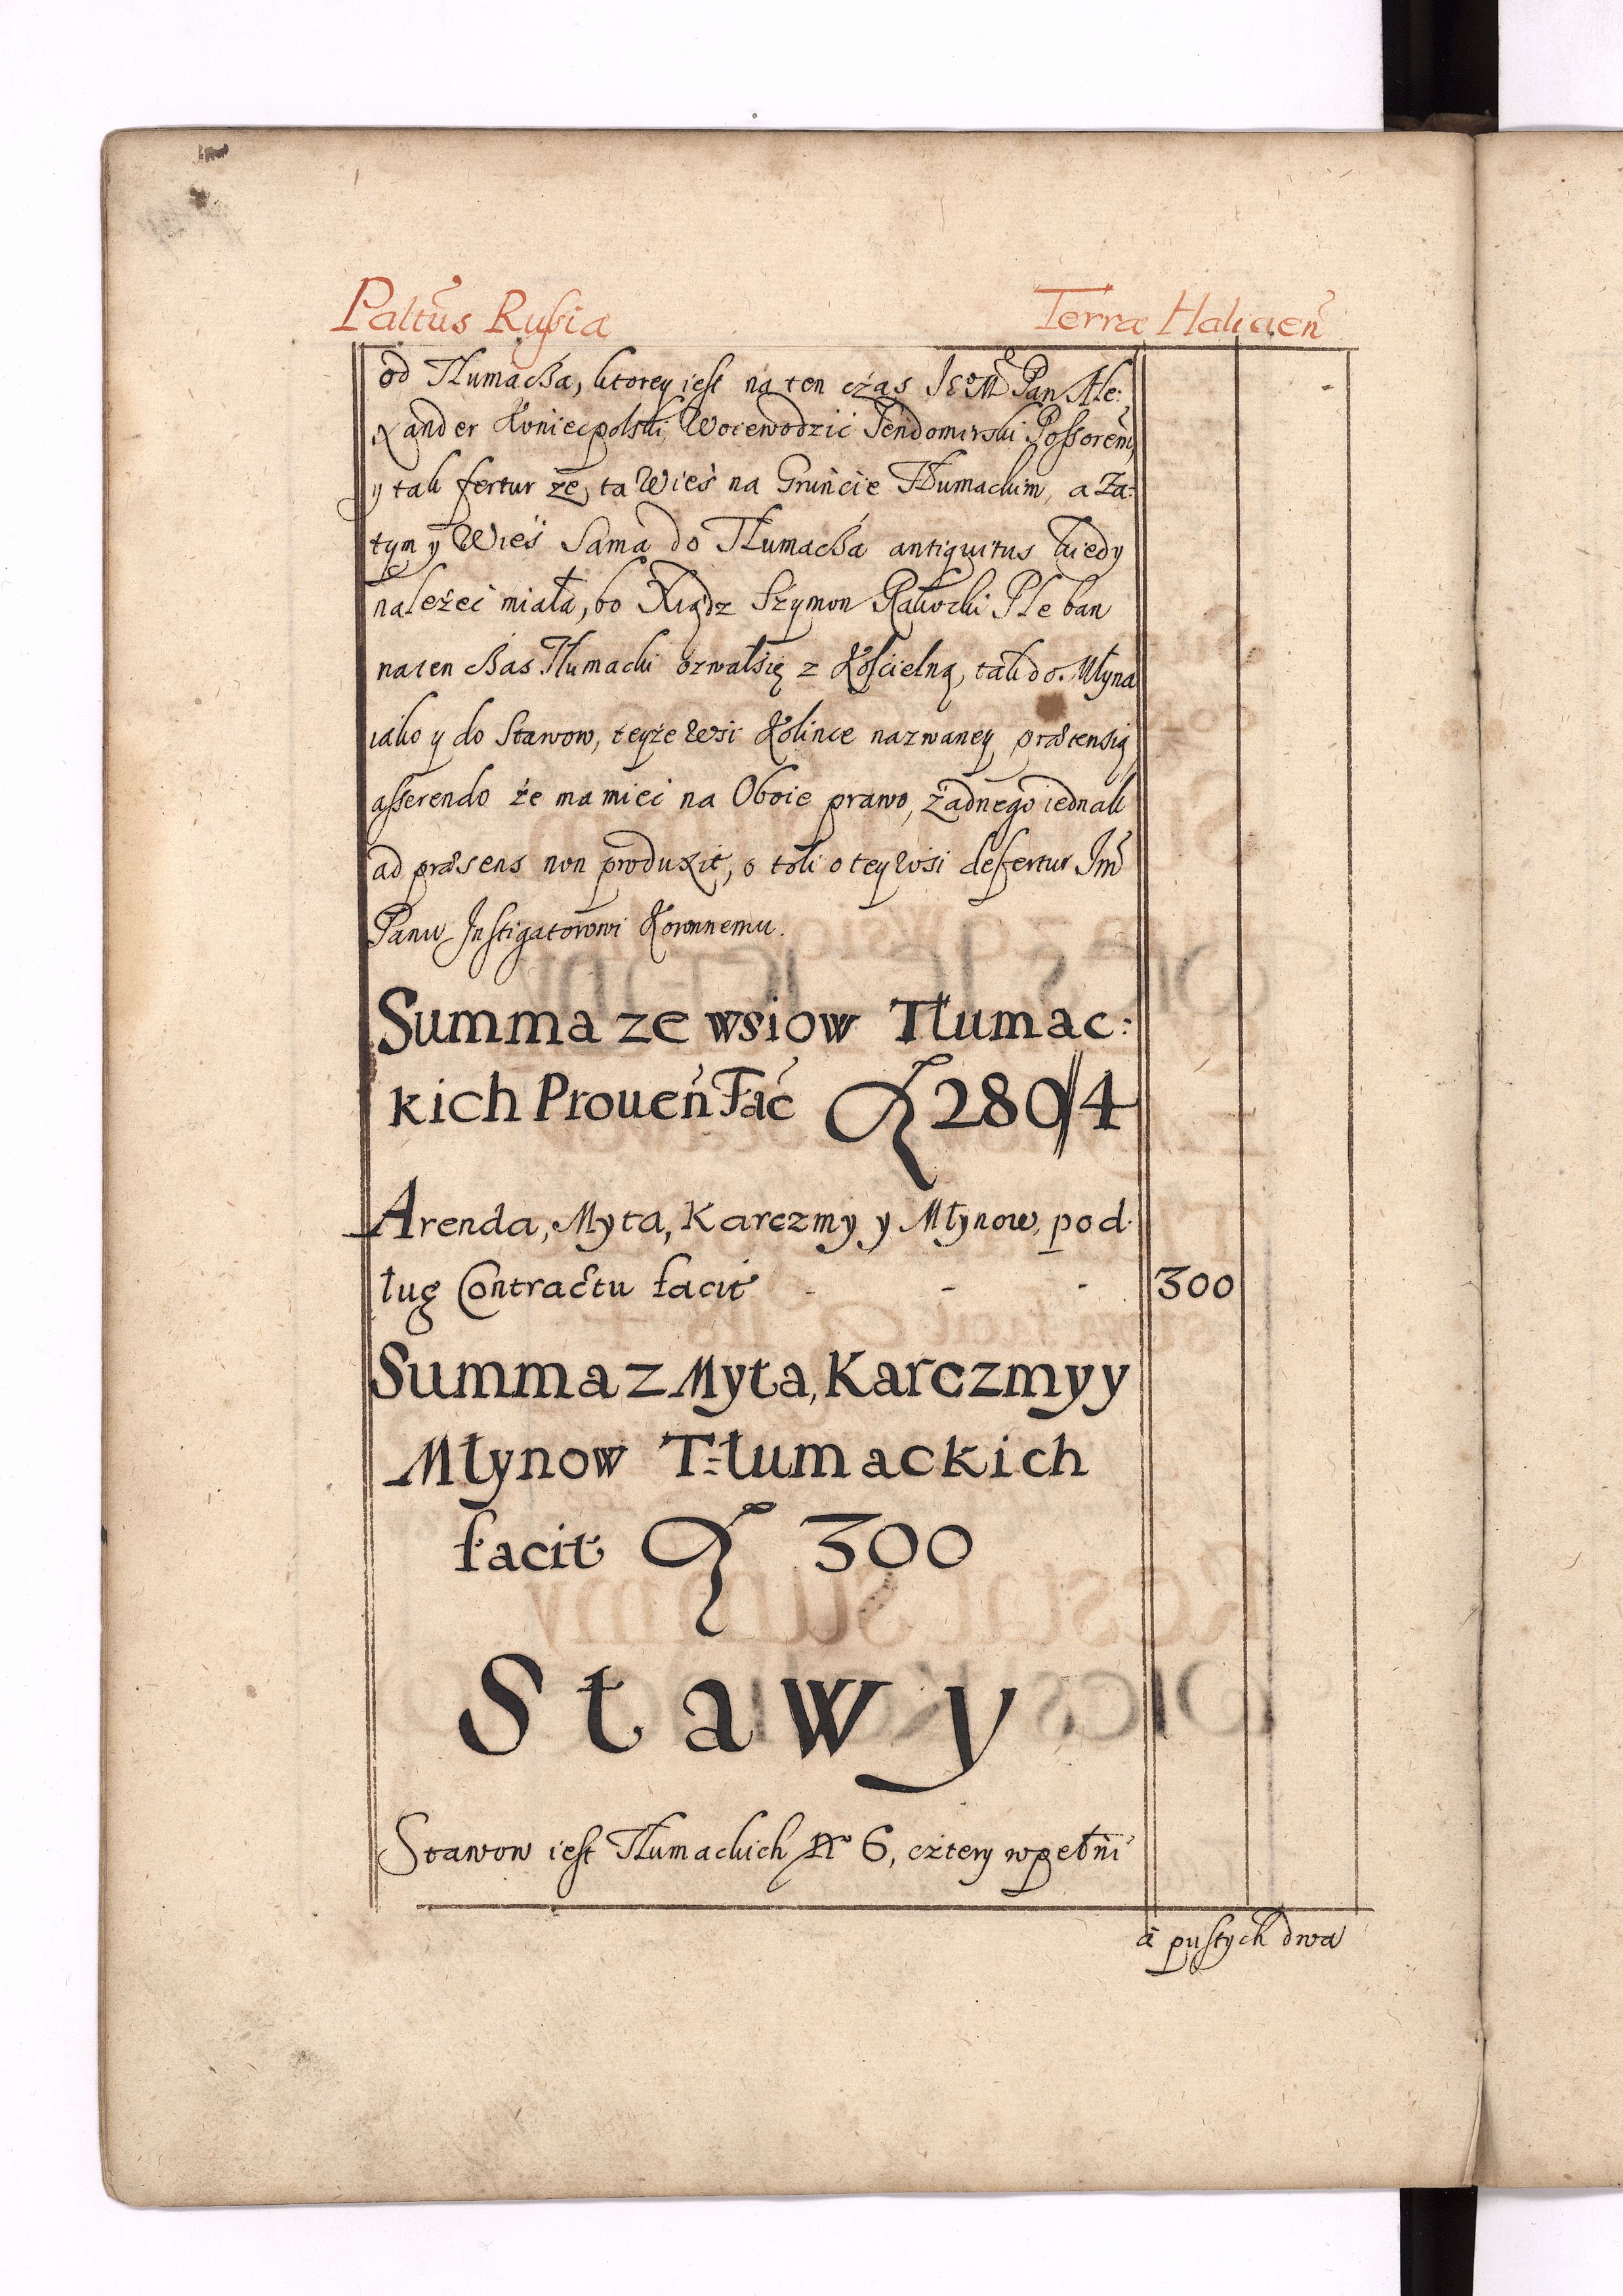 Paltũs Rusiæ Terræ Haliceñ
od Tłumacza, ktorey iest na ten czas JEoM͠ Pan Ale:
xander Koniecpolski, Woiewodzic Sendomirski Possorem,
y tak fertur że, ta Wieś na Gruńcie Tłumackim, a Za:
tym y Wieś Sama do Tłumacza antiquitus kiedy
należeć miała, bo Xiądz Szymon Rakocki Pleban
na ten czas Tłumacki ozwał się z Kościelną, tak do Młyna
iako y do Stawow, teyże Wsi Kolince nazwaney prætensią
asserendo że ma mieć na Oboie prawo, żadnego iednak
ad præsens non produxit, o tok o tey wsi defertur Jm̃
Panu Instigatorowi Koronnemu.
Summa ze wsiow Tłumac:
kich Proueń Fać ₰ 280//4
Arenda, Myta, Karczmy y Młynow, pod
ług Contractu facit - - - 300
Summa z Myta, Karczmy y
Młynow T=łumackich
facit ₰ 300
Stawy
Stawow iest Tłumackich No 6, cztery wpełni
à pustych dwa